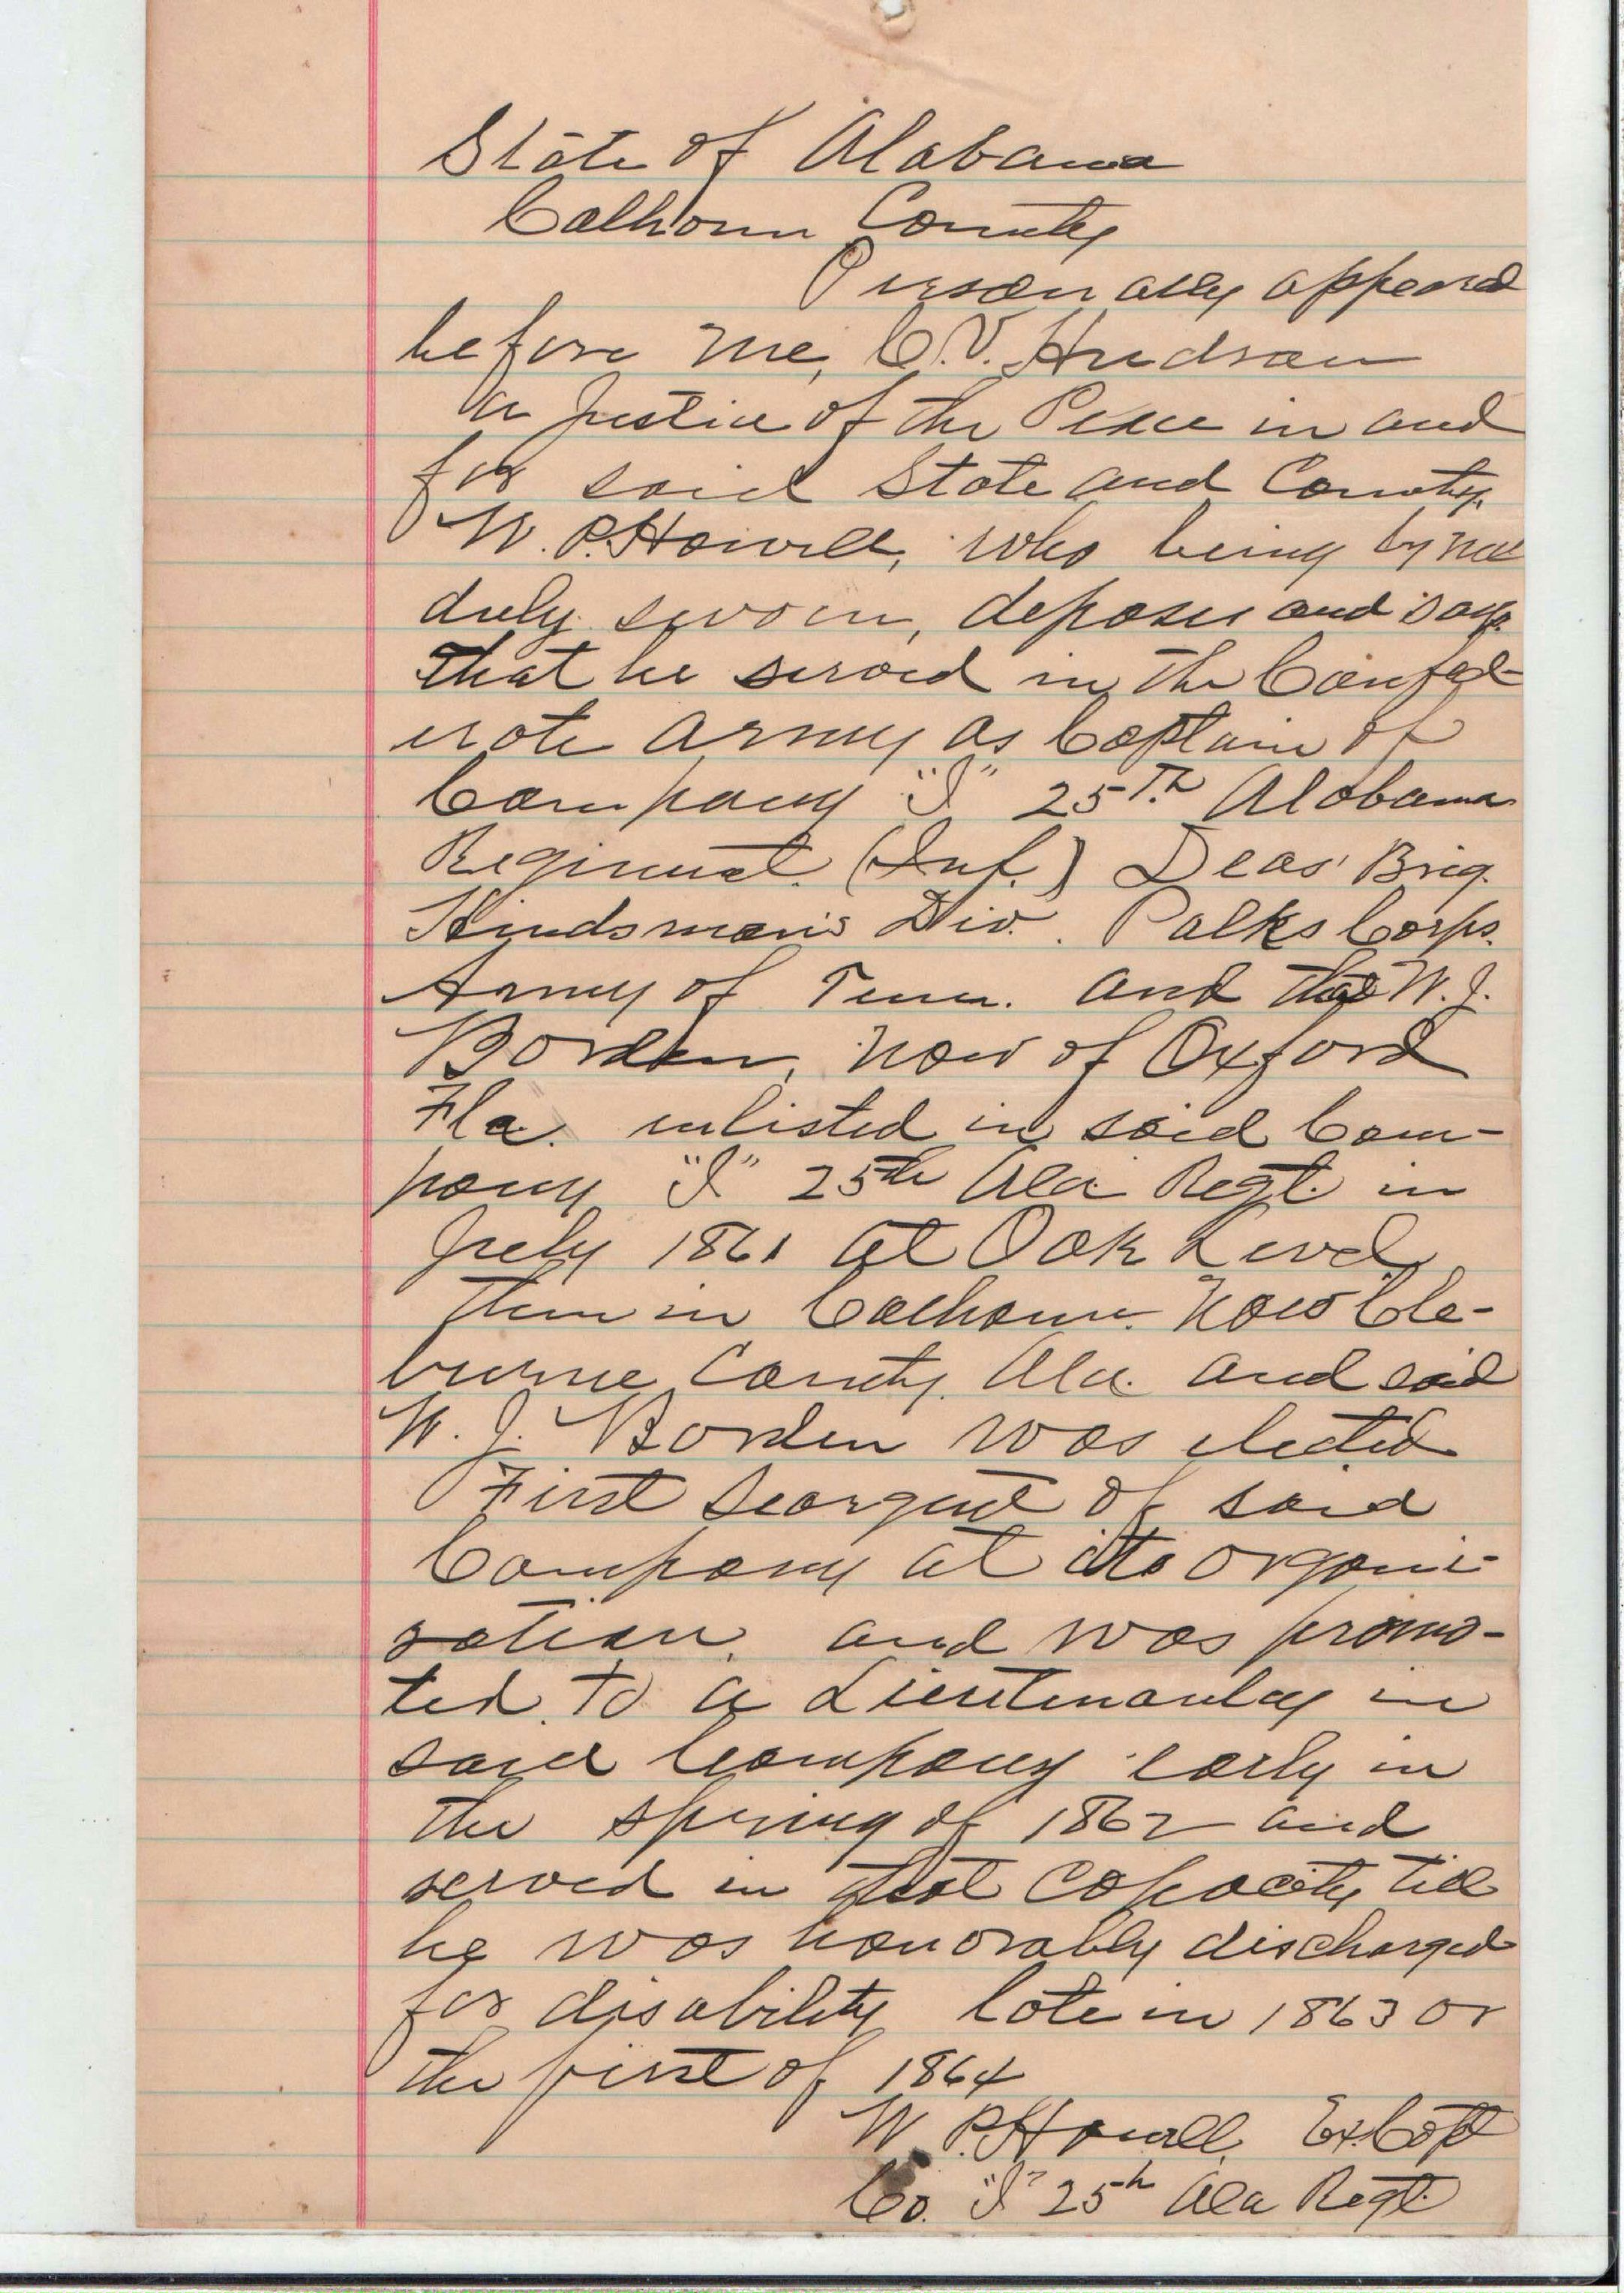 State of Alabama
Calhoun County
Personally appeared
before me, C.V. Hudson
a Justice of the Peace in and
for said State and County.
W. P. Howell, who being by me
duly sworn, deposes and says
that he served in the Confed-
erate Army as Captain of
Company "I" 25Th. Alabama
Regiment. (Inf.) Deas' Brig.
Hindsman's Div. Polks Corps.
Army of Tenn. and that W. J.
Borden, now of Oxford
Fla. enlisted in said Com-
pany "I" 25th Ala Regt. in
July 1861 at Oak Level
then in Calhoun. Now Cle-
burne County. Ala. and said
W. J. Borden was elected
First Seargent of said
Company at its organi-
zation, and was promo-
ted to a Lieutenantcy in
said Company early in
the spring of 1862 and
served in that capacity till
he was honorably discharged
for disability late in 1863 or
the first of 1864
W. P. Howell, Ex. Capt
Co. "I" 25th Ala Regt.